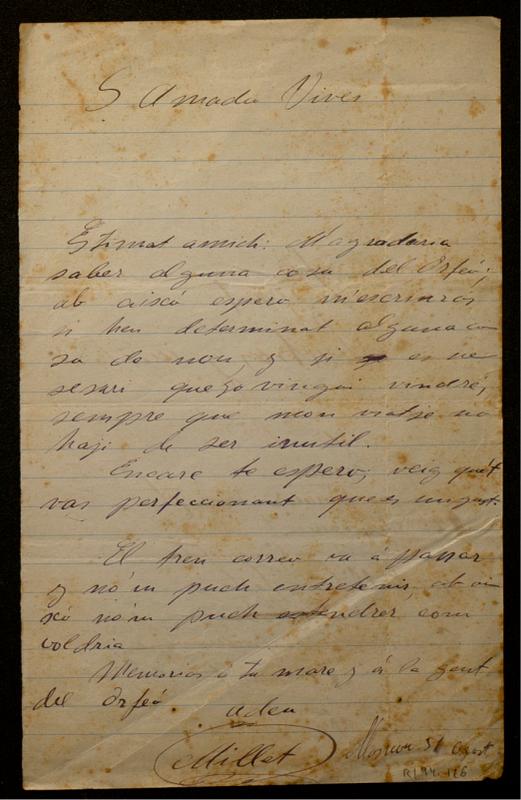 S Amadeu Vives
Estimat amich: M'agradaria
saber alguna cosa del Orfeó;
ab aixó espero m'escriurás
si heu determinat alguna co
sa de nou, y si es ne
sesari que jo vingui vindré,
sempre que mon viatje no
haji de ser inutil.
Encare te espero; veig qu'et
vas perfeccionant que es un gust.
El tren correu va á passar
y no'm puch entretenir, ab ai
xó no'm puch extendrer com
voldria
Memorias á tu mare y á la gent
del Orfeó.
adeu
Millet
31 Agost